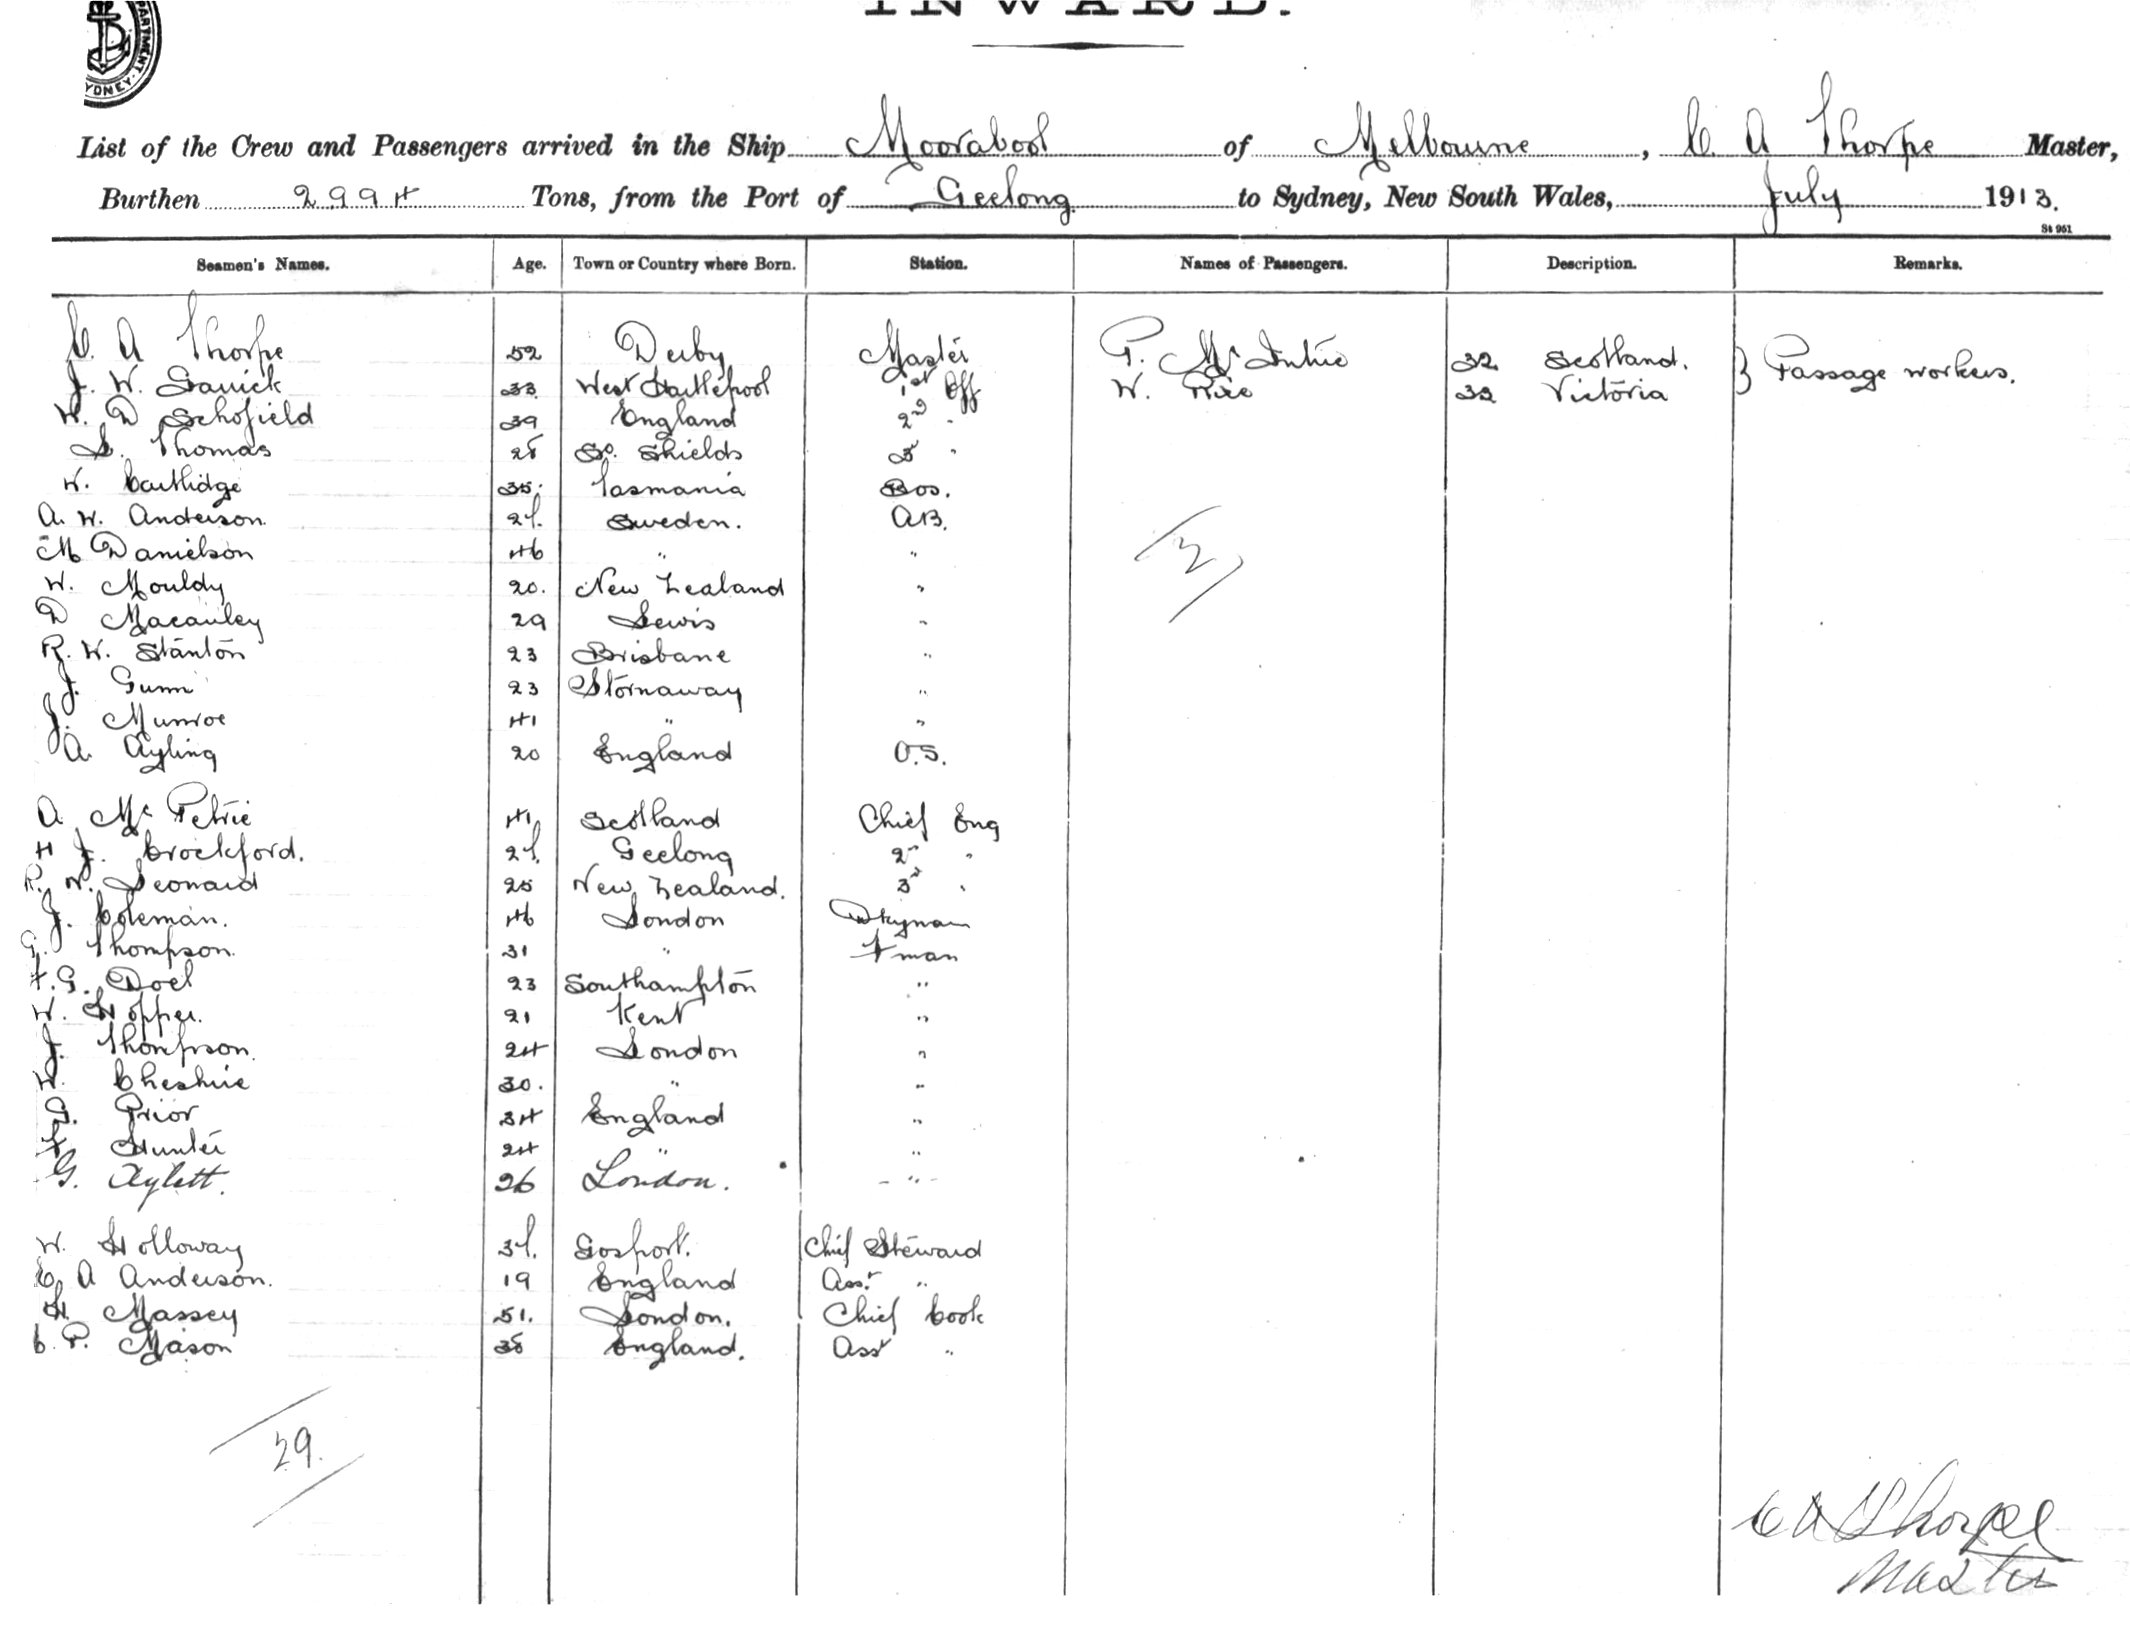 INWARD.
DEPARTMENT. SYDNEY
List of the Crew and Passengers arrived in the Ship Moorabool of Melbourne, C. A Thorpe Master,
Burthen 2994 Tons, from the Port of Geelong to Sydney, New South Wales, July 1913.
St 951
Seamen's Names. Age. Town or Country where Born. Station. Names of Passengers. Description. Remarks.
C. A Thorpe 52 Derby Master P. Mc Intire 32 Scotland. } Passage workers.
J. W. 33 West Hartlepool 1st Off W. Rice 32 Victoria
W. D Schofield 39 England 2nd "
S. Thomas 28 So. Shields 3 "
W. Cartlidge 35. Tasmania Bos.
A. W. Anderson. 27. Sweden. AB.
M Danielson 46 " "
W. Mouldy 20. New Zealand "
D Macauley 29 Lewis "
R. W. Stanton 23 Brisbane "
J. Gunn 23 Stornaway "
J. Munroe 41 " "
A. Ayling 20 England O.S.
2
A. Mc Petrie 41 Scotland Chief Eng
H J. Crockford. 27. Geelong 2nd "
R. W. Leonard 25 New Zealand. 3rd "
J. Coleman. 46 London Dkyman
G. Thompson. 31 " Fman
F. G. Doel 23 Southampton "
W. Hopper. 21 Kent "
J. Thompson. 24 London "
W. Cheshire 30. " "
G. Prior 34 England "
F. Hunter 24 " "
G. Aylett. 26 London. - " -
W. Holloway 37. Gosport. Chief Steward
E. A Anderson. 19 England Asst "
H. Massey 51. London. Chief Cook
C. P. Mason 38 England. Asst "
29.
C A Thorpe
Master